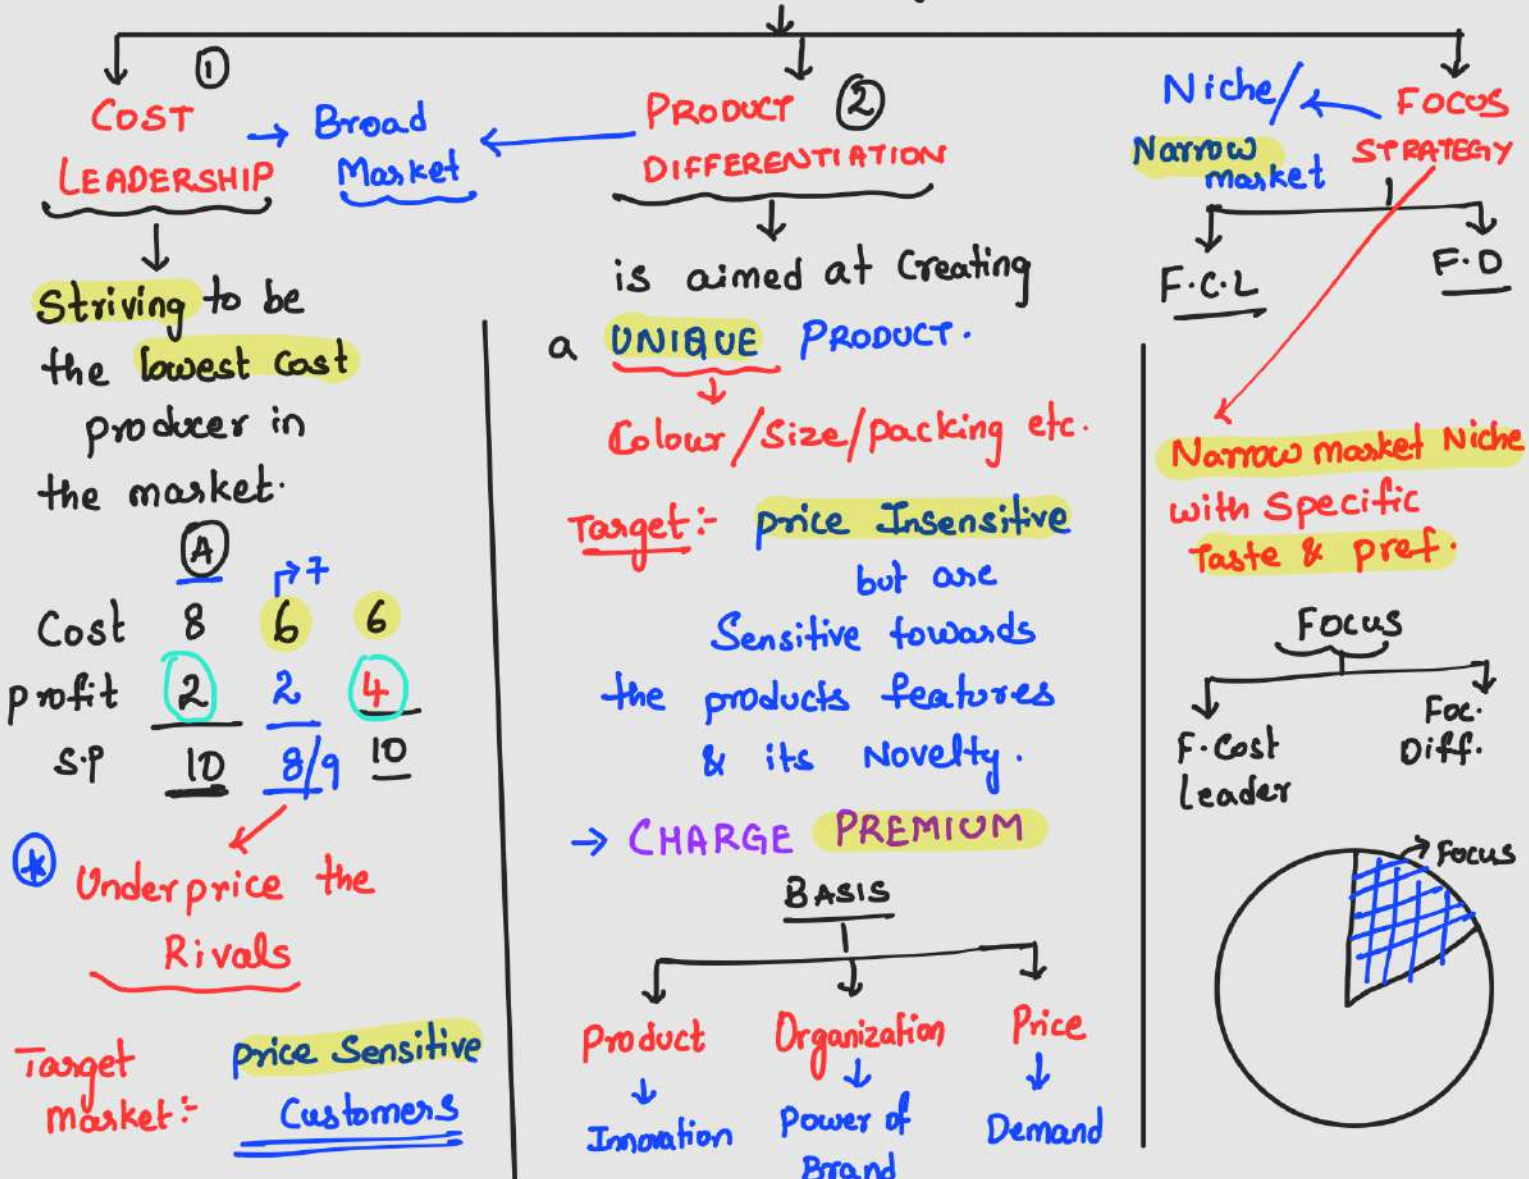 ①
COST
LEADERSHIP
→ Broad
Market
Striving to be
the lowest cost
producer in
the market.
Ⓐ
→ 7
Cost 8 6 6
profit 2 2 4
S.P 10 8/9 10
* Underprice the
Rivals
Target
market:- price Sensitive
Customers
PRODUCT ②
DIFFERENTIATION
is aimed at Creating
a UNIQUE PRODUCT.
Colour/Size/packing etc.
Target:- price Insensitive
but are
Sensitive towards
the products features
& its Novelty.
→ CHARGE PREMIUM
BASIS
Product Organization Price
Innovation Power of Demand
Brand
Niche/
Narrow
market
FOCUS
STRATEGY
F.C.L F.D
Narrow market Niche
with Specific
Taste & pref.
Focus
F.Cost
leader
Foc.
Diff.
Focus